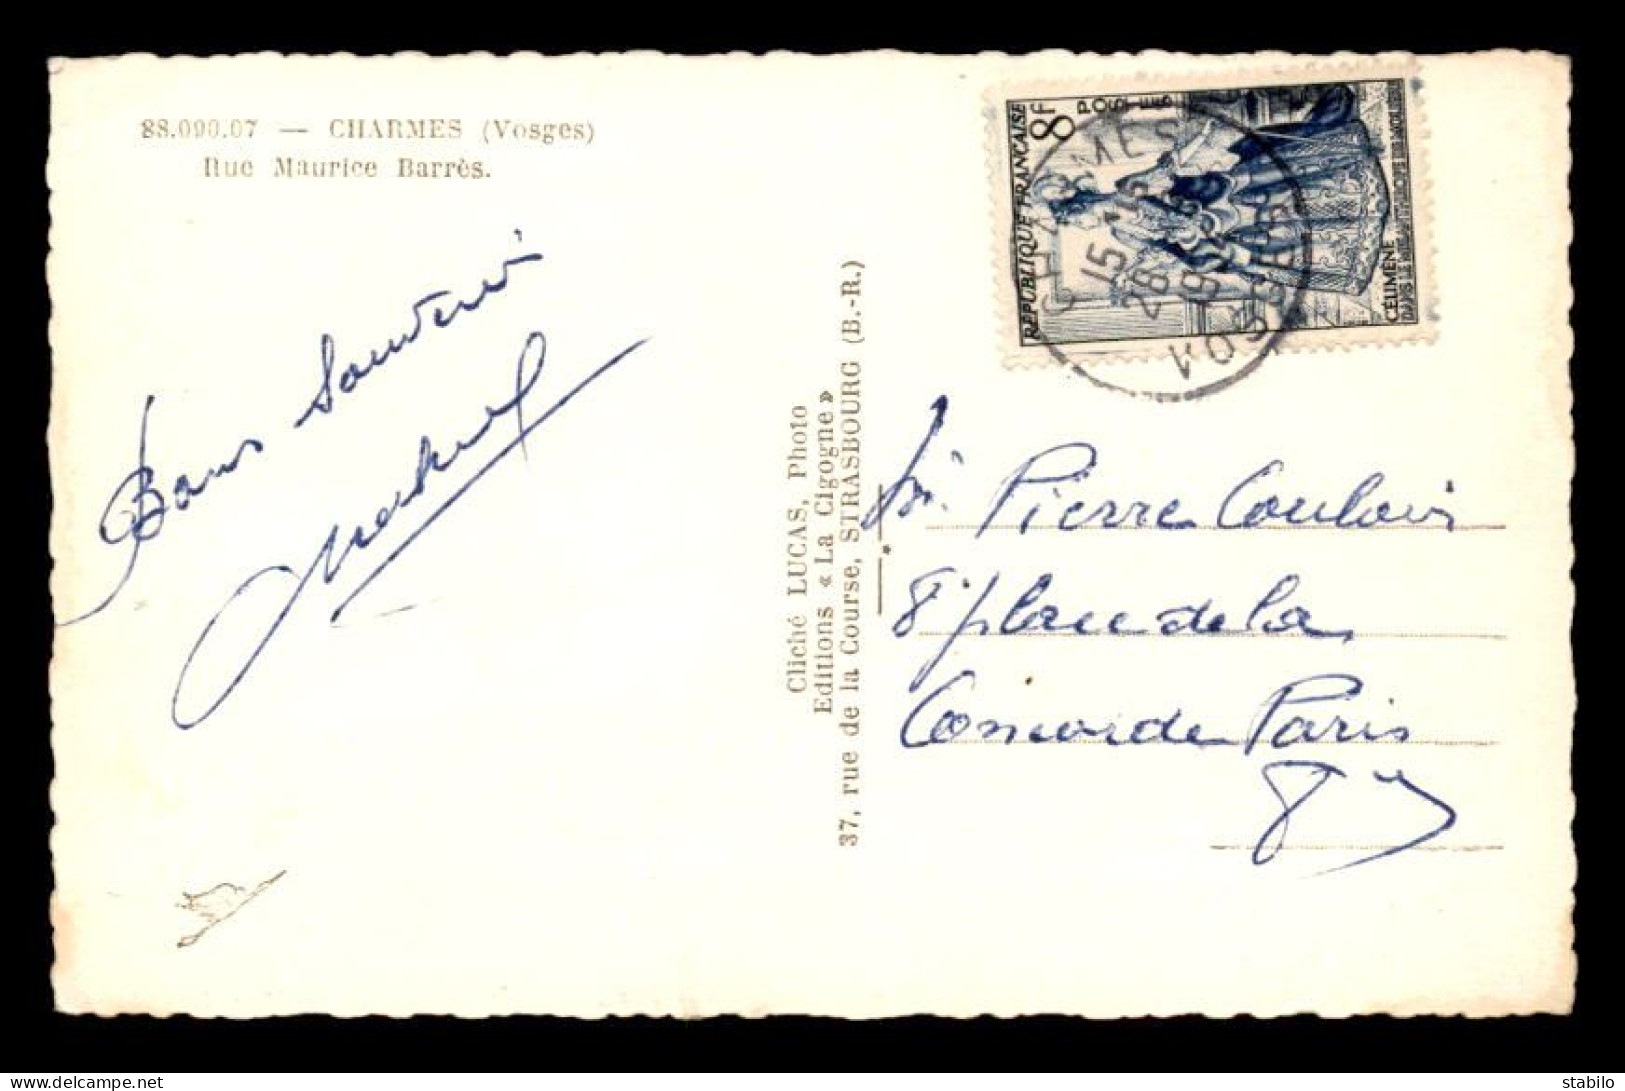 88.090.07 — CHARMES (Vosges)
Rue Maurice Barrès.
Bons Souvenirs
Cliché LUCAS, Photo
Editions « La Cigogne »
37, rue de la Course, STRASBOURG (B.-R.)
REPUBLIQUE FRANÇAISE
8F
POSTES
CÉLIMÈNE
DANS LE MISANTHROPE DE MOLIÈRE
CHARMES
15
28
VOSGES
Pierre Coulom
8 place de la
Concorde Paris
8
stabilo